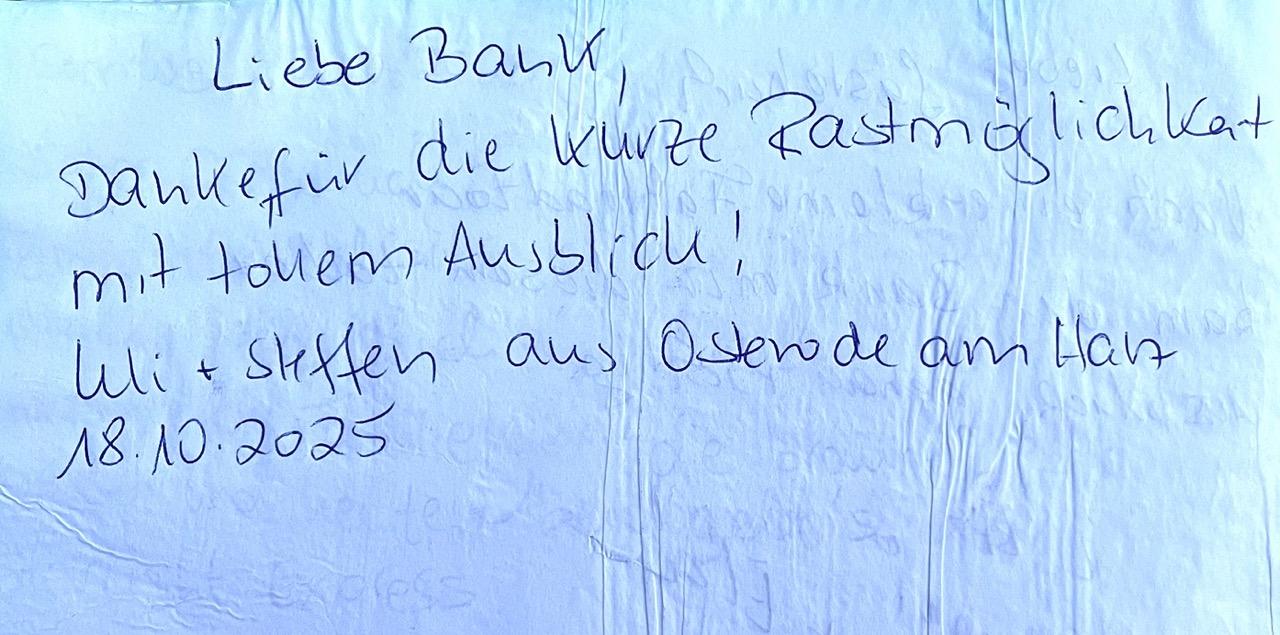 Liebe Bank,
Danke für die kurze Rastmöglichkeit
mit tollem Ausblick!
Uli + Steffen aus Osterode am Harz
18.10.2025